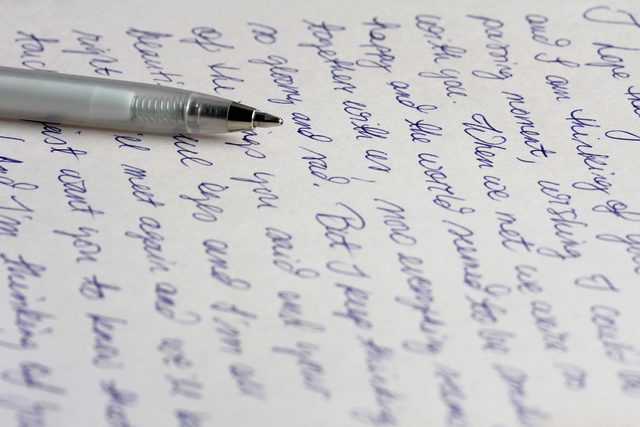 I hope
and I am thinking of you
passing moment, wishing I could be
with you. When we met we were so
happy and the world semed to be
together with us, now everything
so gloomy and sad. But I keep thinking
of the you said and your
eyes and I'm
right meet again and we'll
want you to know that
And I'm thinking of